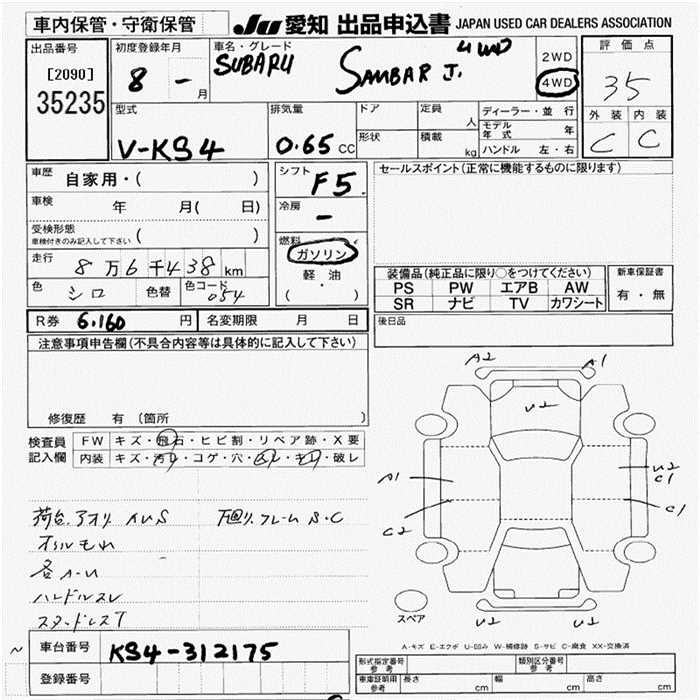 車内保管・守衛保管
JU 愛知 出品申込書 JAPAN USED CAR DEALERS ASSOCIATION
出品番号
[2090]
35235
初度登録年月
8 - 月
車名・グレード
SUBARU SAMBAR J. 4WD
2WD
4WD
評価点
35
外装 内装
C C
型式
V-KS4
排気量
0.65 CC
ドア
形状
定員 人
積載 kg
ディーラー・並行
モデル年式 年
ハンドル 左・右
車歴 自家用・( )
車検 年 月( 日)
受検形態
車検付きのみ記入して下さい ( )
走行 8万6千438km
色 シロ 色替 色コード 054
シフト F5
冷房 -
燃料
ガソリン
軽・油
( )
セールスポイント(正常に機能するものに限ります)
装備品(純正品に限り○をつけてください)
PS PW エアB AW
SR ナビ TV カワシート
新車保証書
有・無
R券 6,160 円 名変期限 月 日
後日品
注意事項申告欄(不具合内容等は具体的に記入して下さい)
修復歴 有〔箇所 〕
検査員
記入欄
FW キズ・飛石・ヒビ割・リペア跡・X要
内装 キズ・汚れ・コゲ・穴・スレ・キレ・破レ
荷台.アオリ AUS 下回リ.フレーム S・C
オイルもれ
各A-U
ハンドルスレ
スタッドレスT
A2 A1
U2
A1 U2 C1
C2 C1
U2 U2
スペア
A-キズ E-エクボ U-凹み W-補修跡 S-サビ C-腐食 XX-交換済
車台番号 KS4-312175
登録番号
形式指定番号 参考 類別区分番号 参考
車庫証明用 参考 長さ cm 幅 cm 高さ cm